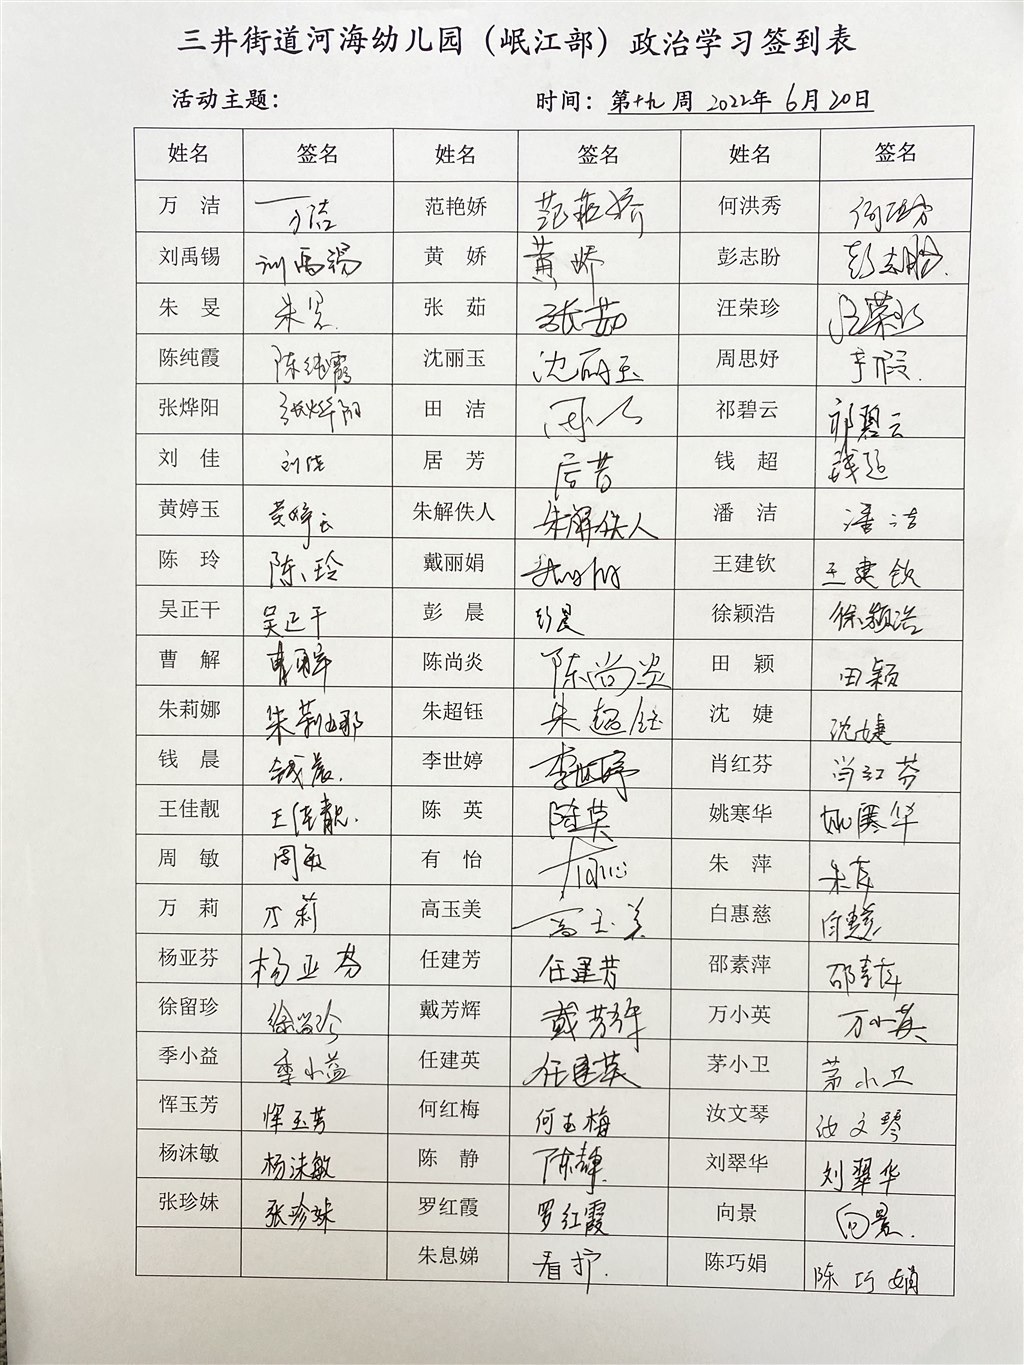 三井街道河海幼儿园（岷江部）政治学习签到表
活动主题： 时间：第十九周 2022年 6月20日
姓名 签名 姓名 签名 姓名 签名
万 洁 万洁 范艳娇 范艳娇 何洪秀
刘禹锡 刘禹锡 黄 娇 黄娇 彭志盼 彭志盼.
朱 旻 朱旻. 张 茹 张茹 汪荣珍 汪荣珍
陈纯霞 陈纯霞 沈丽玉 沈丽玉 周思妤 产假.
张烨阳 张烨阳 田 洁 祁碧云 祁碧云
刘 佳 刘佳 居 芳 居芳 钱 超 钱超
黄婷玉 黄婷玉 朱解佚人 朱解佚人 潘 洁 潘洁
陈 玲 陈玲 戴丽娟 王建钦 王建钦
吴正干 吴正干 彭 晨 彭晨 徐颖浩 徐颖浩
曹 解 曹解 陈尚炎 陈尚炎 田 颖 田颖
朱莉娜 朱莉娜 朱超钰 朱超钰 沈 婕 沈婕
钱 晨 钱晨. 李世婷 李世婷 肖红芬 肖红芬
王佳靓 王佳靓. 陈 英 陈英 姚寒华 姚寒华
周 敏 周敏 有 怡 有怡 朱 萍 朱萍
万 莉 万莉 高玉美 高玉美 白惠慈 白惠慈
杨亚芬 杨亚芬 任建芳 任建芳 邵素萍 邵素萍
徐留珍 徐留珍 戴芳辉 戴芳辉 万小英 万小英
季小益 季小益 任建英 任建英 茅小卫 茅小卫
恽玉芳 恽玉芳 何红梅 何红梅 汝文琴 汝文琴
杨沫敏 杨沫敏 陈 静 陈静. 刘翠华 刘翠华
张珍妹 张珍妹 罗红霞 罗红霞 向景 向景.
朱息娣 看护. 陈巧娟 陈巧娟